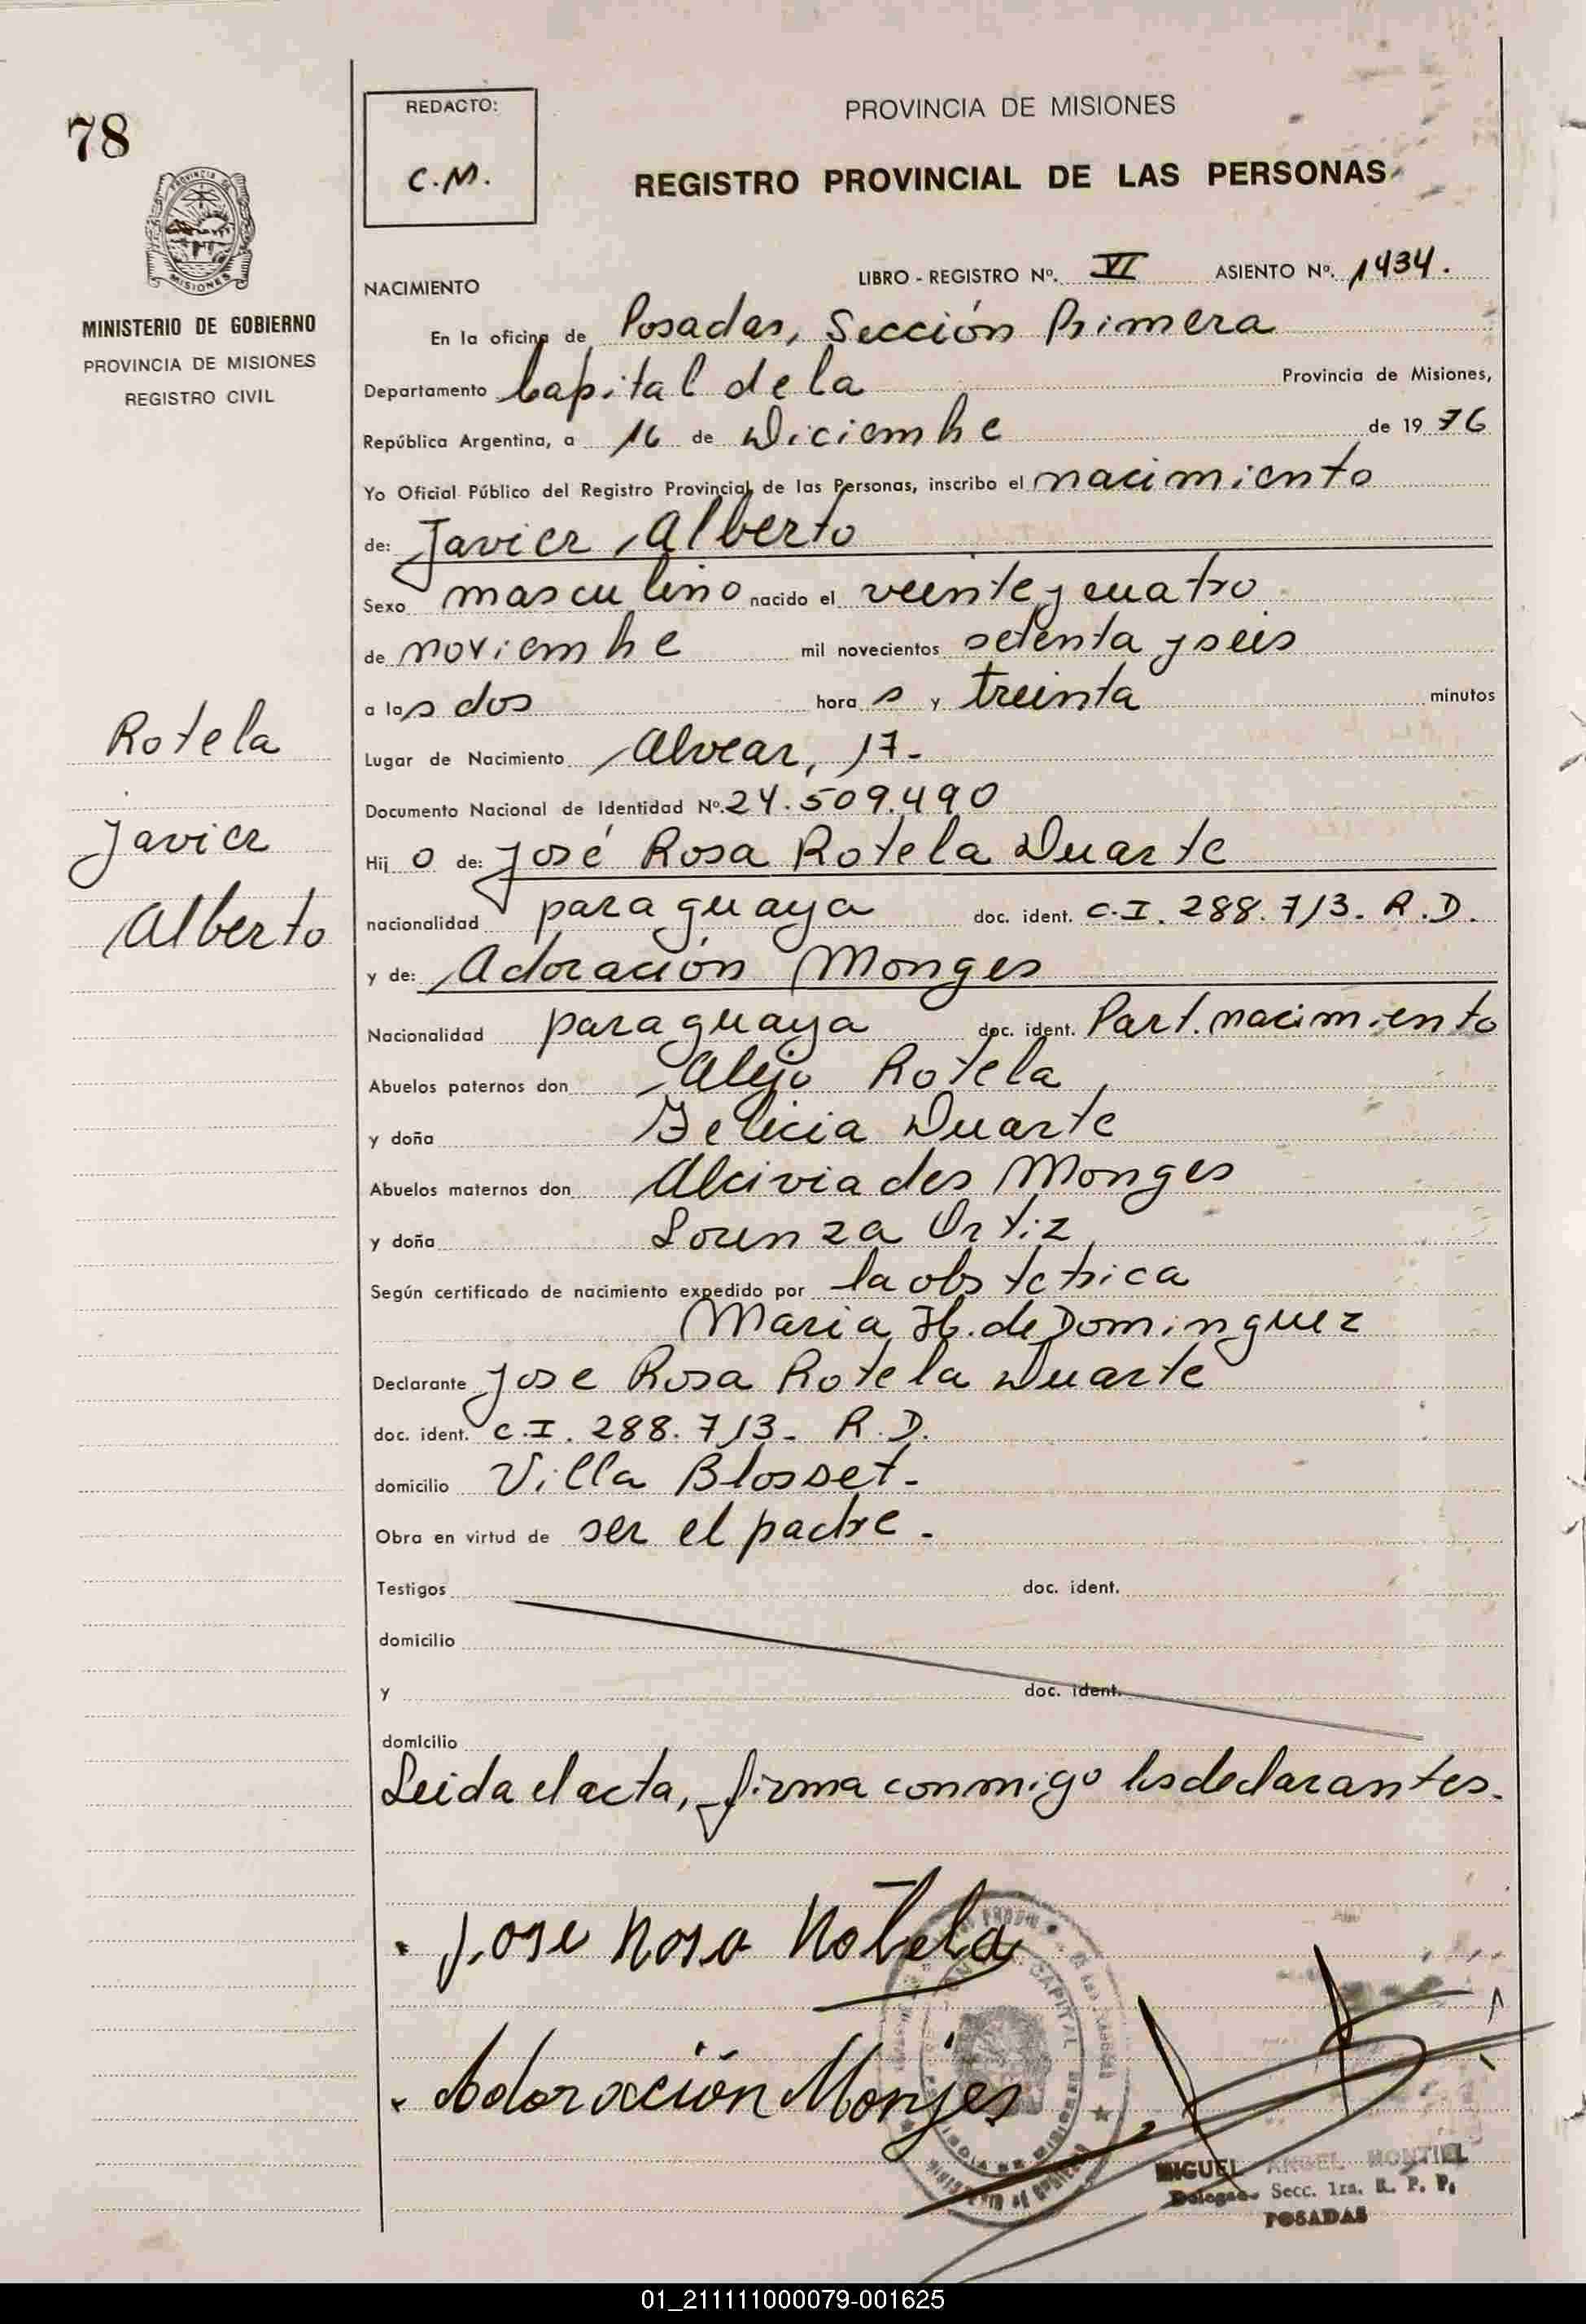 78
PROVINCIA DE MISIONES
MINISTERIO DE GOBIERNO
PROVINCIA DE MISIONES
REGISTRO CIVIL
Rotela
Javier
Alberto
REDACTO:
C.M.
PROVINCIA DE MISIONES
REGISTRO PROVINCIAL DE LAS PERSONAS
LIBRO - REGISTRO Nº. VI ASIENTO Nº. 1434.
NACIMIENTO
En la oficina de Posadas, Sección Primera
Departamento Capital de la Provincia de Misiones,
República Argentina, a 16 de Diciembre de 1976
Yo Oficial Público del Registro Provincial de las Personas, inscribo el nacimiento
de: Javier Alberto
Sexo masculino nacido el veinte y cuatro
de noviembre mil novecientos setenta y seis
a las dos horas y treinta minutos
Lugar de Nacimiento Alvear, 17.-
Documento Nacional de Identidad Nº. 24.509.490
Hijo de: José Rosa Rotela Duarte
nacionalidad paraguaya doc. ident. C.I. 288.713. R.D.
y de: Adoración Monges
Nacionalidad paraguaya doc. ident. Part. nacimiento
Abuelos paternos don Alejo Rotela,
y doña Felicia Duarte
Abuelos maternos don Alciviades Monges
y doña Lorenza Ortiz,
Según certificado de nacimiento expedido por la obstetrica
Maria H. de Dominguez
Declarante Jose Rosa Rotela Duarte
doc. ident. C.I. 288.713- R.D.
domicilio Villa Blosset.-
Obra en virtud de ser el padre.-
Testigos doc. ident.
domicilio
y doc. ident.
domicilio
Leida el acta, firma conmigo los declarantes.
Jose Rosa Rotela
Adoración Monjes
MIGUEL ANGEL MONTIEL
Delegado Secc. 1ra. R. P. P.
POSADAS
01_211111000079-001625